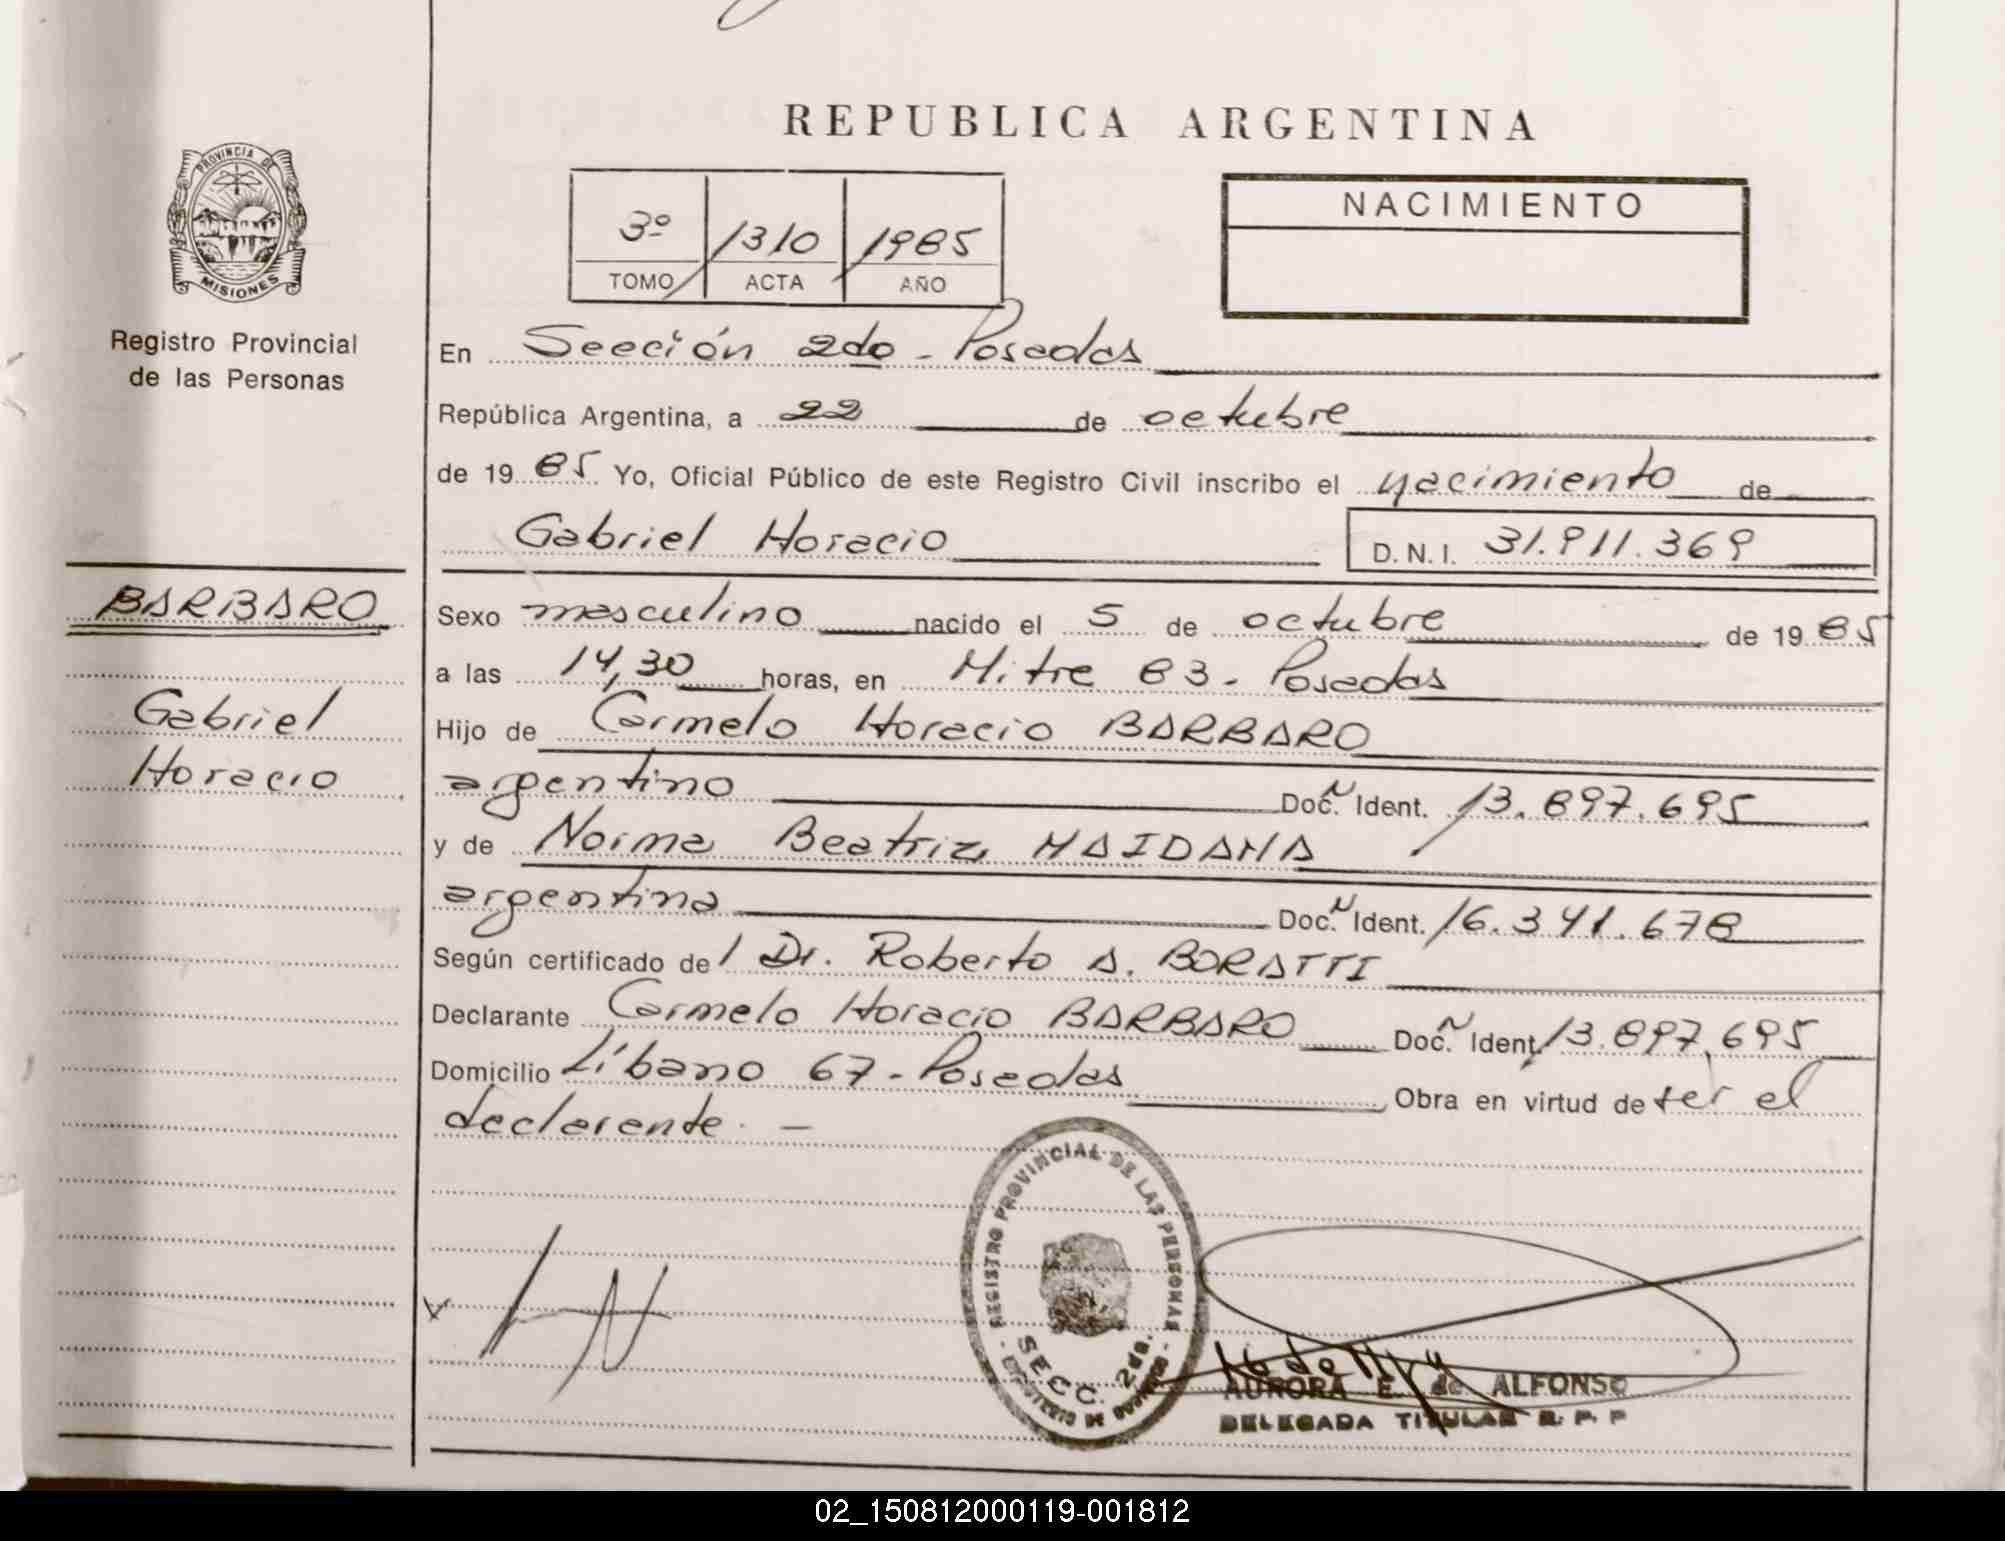 REPUBLICA ARGENTINA
PROVINCIA DE
MISIONES
Registro Provincial
de las Personas
NACIMIENTO
3º 1310 1985
TOMO ACTA AÑO
En Sección 2da - Posadas
República Argentina, a 22 de octubre
de 1985 Yo, Oficial Público de este Registro Civil inscribo el nacimiento de
Gabriel Horacio D.N.I. 31.911.369
BARBARO
Gabriel
Horacio
Sexo masculino nacido el 5 de octubre de 1985
a las 14,30 horas, en Mitre 83 - Posadas
Hijo de Carmelo Horacio BARBARO
argentino Doc. N Ident. 13.897.695
y de Norma Beatriz MAIDANA
argentina Doc. N Ident. 16.341.678
Según certificado del Dr. Roberto A. BORATTI
Declarante Carmelo Horacio BARBARO Doc. N Ident. 13.897.695
Domicilio Líbano 67 - Posadas Obra en virtud de ser el
declarante. -
REGISTRO PROVINCIAL DE LAS PERSONAS
SECC. 2da.
AURORA E. de ALFONSO
DELEGADA TITULAR R. P. P
02_150812000119-001812